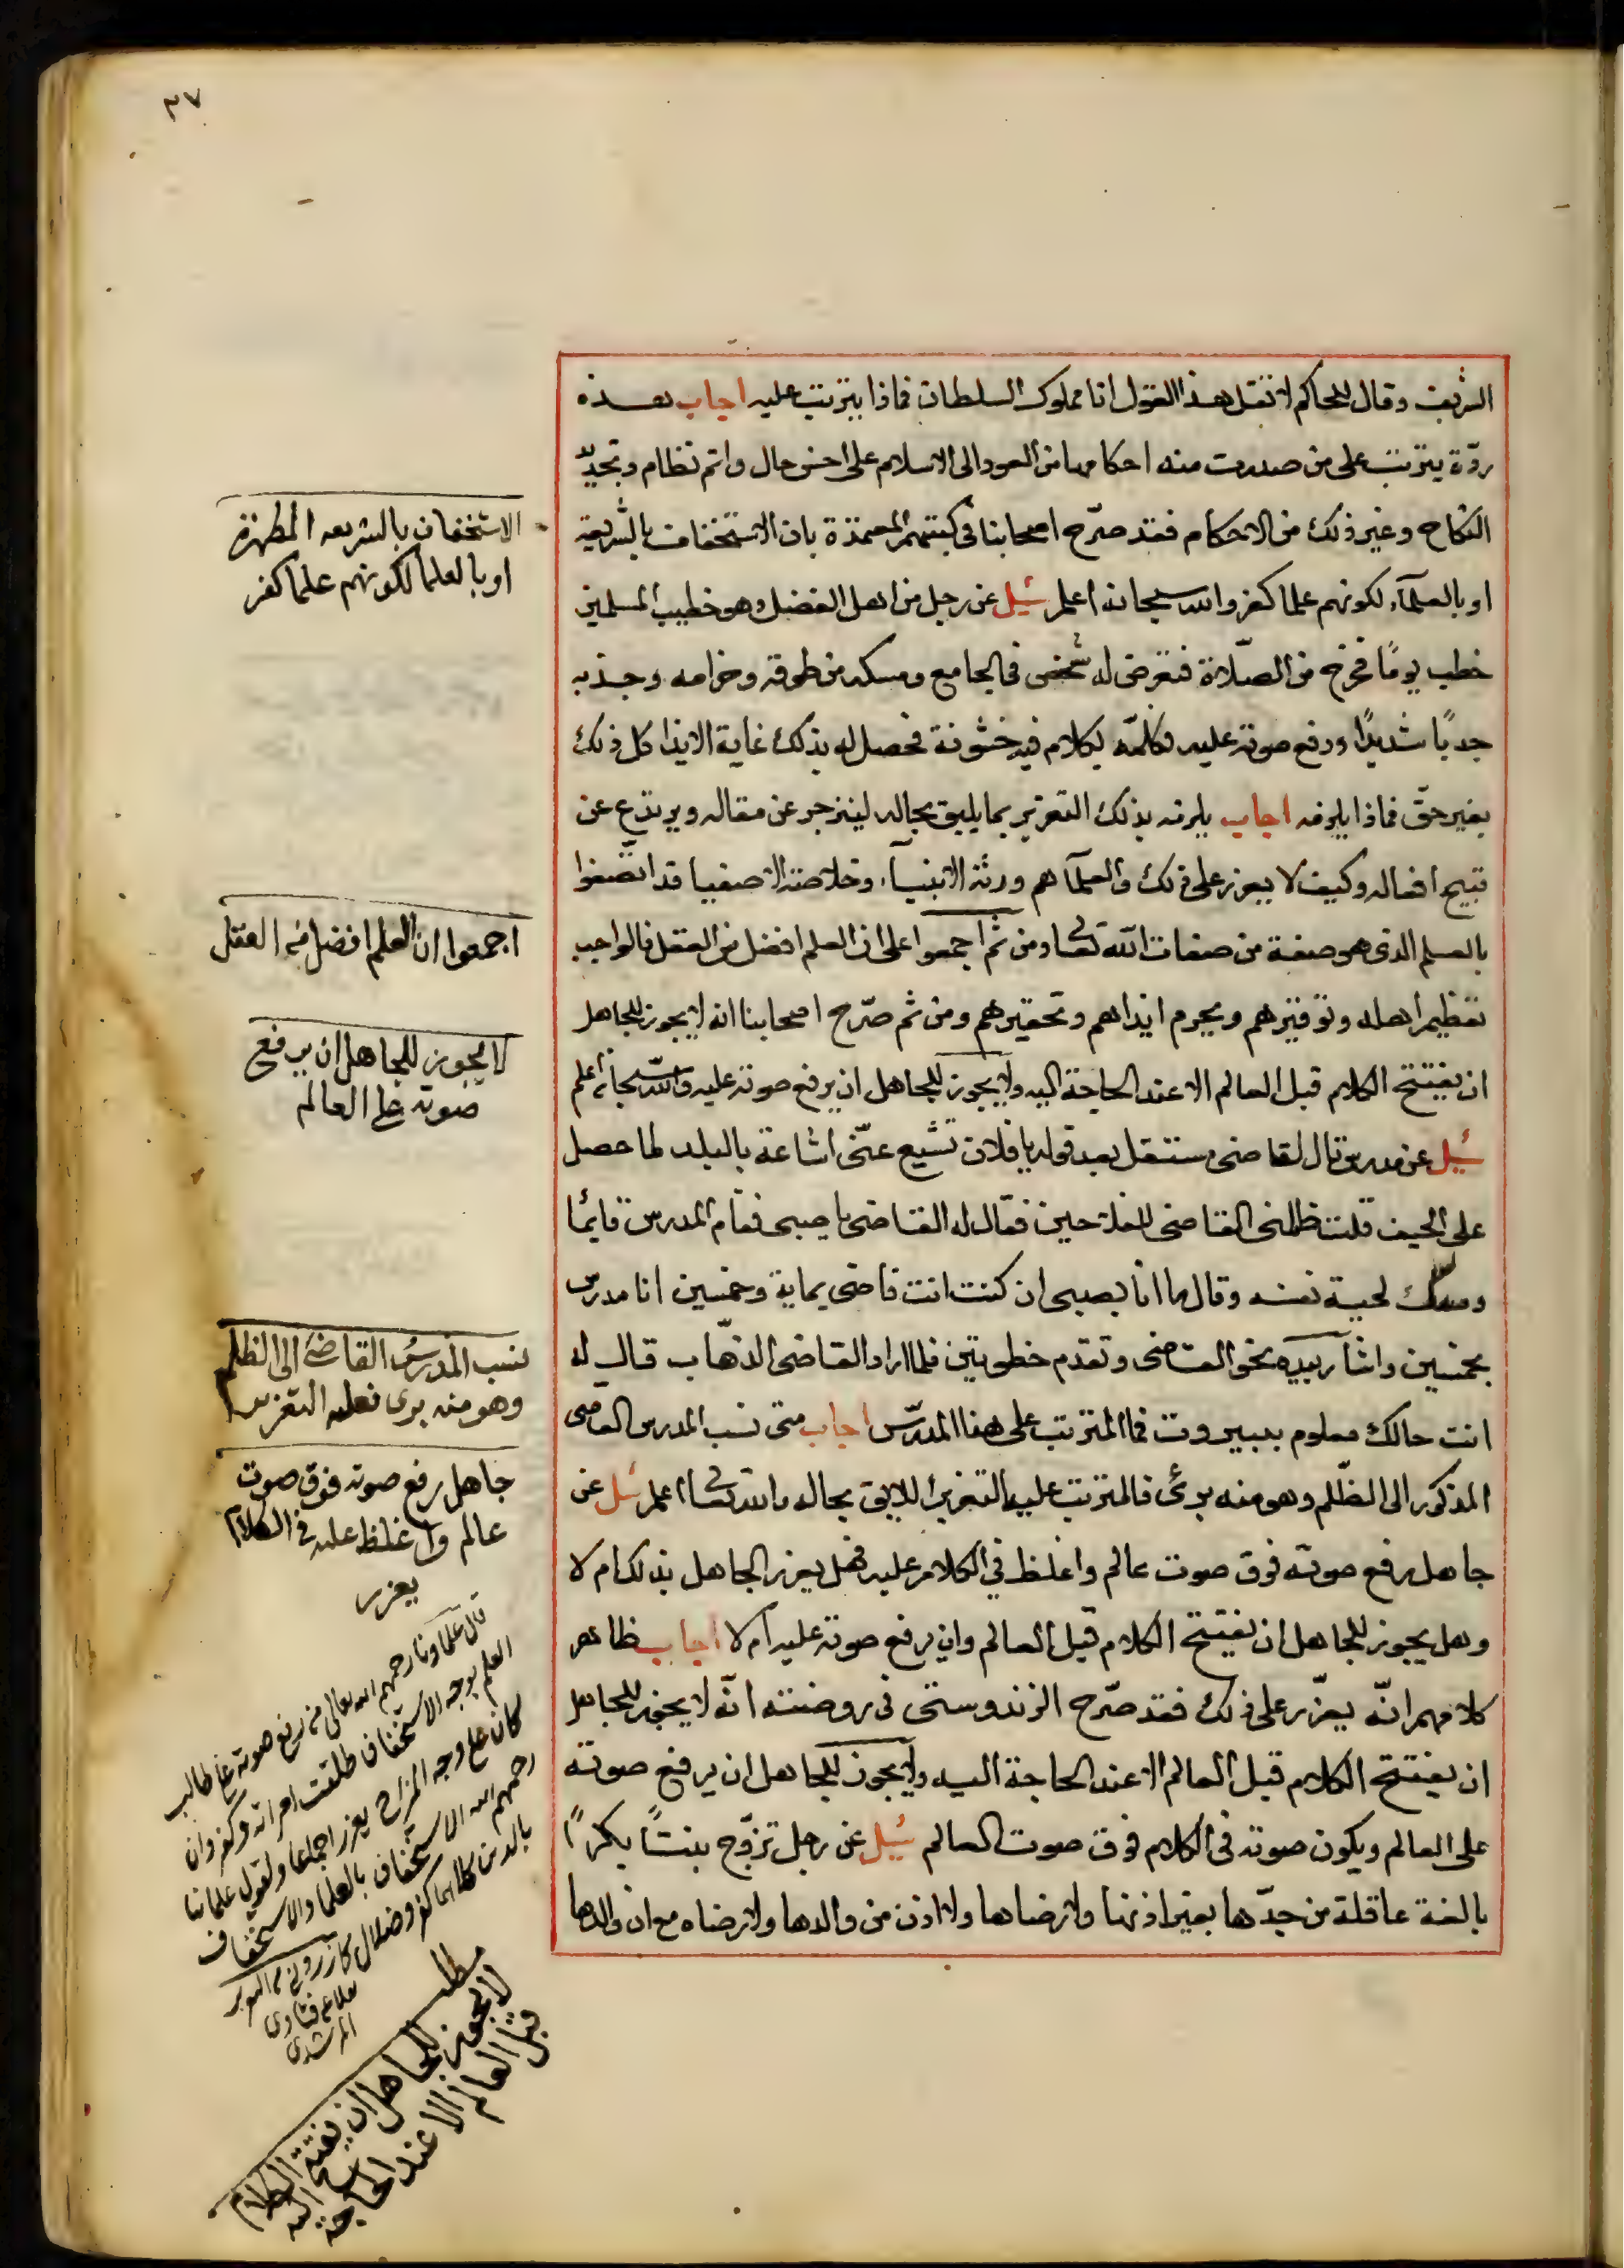 ٣٧
الشريف وقال للحاكم لا تقل هذا القول انا مملوك السلطان فماذا يترتب عليه اجاب هذه
ردّة يترتب على من صدرت منه احكامها من العود الى الاسلام على احسن حال واتم نظام وتجديد
النكاح وغير ذلك من الاحكام فقد صرّح اصحابنا فى كتبهم المعتمدة بان الاستخفاف بالشريعة
او بالعلمآء لكونهم علما كفر والله سبحانه اعلم سُئِل عن رجل من اهل الفضل وهو خطيب المسلمين
خطب يومًا فخرج من الصّلاة فتعرض له شخص فى الجامع ومسكه من طوقه وحزامه وجذبه
جذبًا شديدًا ورفع صوته عليه وكلمّه بكلام فيه خشونة فحصل له بذلك غاية الايذا كل ذلك
بغير حقّ فماذا يلزمه اجاب يلزمه بذلك التعزير بما يليق بحاله لينزجر عن مقاله ويرتدع عن
قبيح افعاله وكيف لا يعزر على ذلك والعلمآ هم ورثة الانبيآء وخلاصة الاصفيا قد اتصفوا
بالعلم الذى هو صفة من صفات الله تعالى ومن ثم اجمعوا على ان العلم افضل من العقل فالواجب
تعظيم اهله وتوقيرهم ويحرم ايذاهم وتحقيرهم ومن ثم صرّح اصحابنا انه لا يجوز للجاهل
ان يفتتح الكلام قبل العالم الا عند الحاجة اليه ولا يجوز للجاهل ان يرفع صوته عليه والله سبحانه اعلم
سُئِل عن مدرس قال لقاضى مستقل بعد قوله يا فلان تشيع عنّى اشاعة بالبلد لما حصل
على الحيف قلت ظلمنى القاضى للفلاحين فقال له القاضى يا صبى فقام المدرس قايمًا
ومسك لحية نفسه وقال ما انا بصبى ان كنت انت قاضى بماية وخمسين انا مدرس
بخمسين واشار بيده نحو القاضى وتقدم خطوتين فلما اراد القاضى الذهاب قال له
انت حالك معلوم ببيروت فما المترتب على هذا المدرّس اجاب متى نسب المدرس القاضى
المذكور الى الظّلم وهو منه برئ فالمترتب عليه التعزير اللايق بحاله والله تعالى اعلم سُئل عن
جاهل رفع صوته فوق صوت عالم واغلظ في الكلام عليه فهل يعزر الجاهل بذلك ام لا
وهل يجوز للجاهل ان يفتتح الكلام قبل العالم وان يرفع صوته عليه ام لا اجاب ظاهر
كلامهم انّه يعزّر على ذلك فقد صرّح الزندوستى فى روضته انّه لا يجوز للجاهل
ان يفتتح الكلام قبل العالم الا عند الحاجة اليه ولا يجوز للجاهل ان يرفع صوته
على العالم ويكون صوته فى الكلام فوق صوت العالم سُئِل عن رجل تزوّج بنتًا بكرًا
بالغة عاقلة من جدّها بغير اذنها ولا رضاها ولا اذن من والدها ولا رضاه مع ان والدها
الاستخفاف بالشريعه المطهرة
او بالعلما لكونهم علما كفر
اجمعوا ان العلم افضل من العقل
لا يجوز للجاهل ان يرفع
صوته على العالم
نسب المدرس القاضى الى الظلم
وهو منه برى فعليه التعزير
جاهل رفع صوته فوق صوت
عالم واغلظ عليه فى الكلام
يعزر
قال علماونا رحمهم الله تعالى من رفع صوته على طالب
العلم بوجه الاستخفاف طلقت امراته وكفر وان
كان على وجه المزاح يعزر اجماعا ولقول علمائنا
رحمهم الله الاستخفاف بالعلما والاستخفاف
بالدين كلاهما كفر وضلال كازرونى
فتاوى
المرشدى
مطلب
لا يجوز للجاهل ان يفتتح الكلام
قبل العالم الا عند الحاجة
اليه